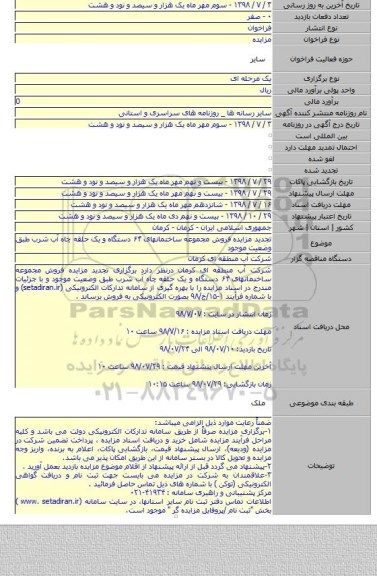 تاریخ آخرین به روز رسانی
۳ / ۷ / ۱۳۹۸ - سوم مهر ماه یک هزار و سیصد و نود و هشت
تعداد دفعات بازدید
۰ - صفر
نوع انتشار
فراخوان
نوع فراخوان
مزایده
حوزه فعالیت فراخوان
سایر
نوع برگزاری
یک مرحله ای
واحد پولی برآورد مالی
ریال
برآورد مالی
0
نام روزنامه منتشر کننده آگهی
سایر رسانه ها _ روزنامه های سراسری و استانی
تاریخ درج آگهی در روزنامه
۳ / ۷ / ۱۳۹۸ - سوم مهر ماه یک هزار و سیصد و نود و هشت
بین المللی است
احتمال تمدید مهلت دارد
لغو شده
تجدید شده
تاریخ بازگشایی پاکات
۲۹ / ۷ / ۱۳۹۸ - بیست و نهم مهر ماه یک هزار و سیصد و نود و هشت
مهلت ارسال پیشنهاد
۲۹ / ۷ / ۱۳۹۸ - بیست و نهم مهر ماه یک هزار و سیصد و نود و هشت
مهلت دریافت اسناد
۱۶ / ۷ / ۱۳۹۸ - شانزدهم مهر ماه یک هزار و سیصد و نود و هشت
تاریخ اعتبار پیشنهاد
۲۹ / ۱۰ / ۱۳۹۸ - بیست و نهم دی ماه یک هزار و سیصد و نود و هشت
کشور | استان | شهر
جمهوری اسلامی ایران - کرمان - کرمان
موضوع
تجدید مزایده فروش مجموعه ساختمانهای ۶۴ دستگاه و یک حلقه چاه آب شرب طبق
وضعیت موجود
دستگاه مناقصه گزار
شرکت آب منطقه ای کرمان
محل دریافت اسناد
شرکت آب منطقه ای کرمان درنظر دارد برگزاری تجدید مزایده فروش مجموعه
ساختمانهای ۶۴ دستگاه و یک حلقه چاه آب شرب طبق وضعیت موجود و با جزئیات
مندرج در اسناد مزایده را با بهره گیری از سامانه تدارکات الکترونیکی (setadiran.ir) و
با شماره فرآیند ۱-۱۵/ج/۹۸ بصورت الکترونیکی به فروش برساند .
زمان انتشار در سایت : ۹۸/۷/۰۷
مهلت دریافت اسناد مزایده : ۹۸/۷/۱۶ ساعت ۱۰
تاریخ بازدید: ۹۸/۰۷/۱۰ الی ۹۸/۰۷/۲۴
آخرین مهلت ارسال پیشنهاد قیمت : ۹۸/۰۷/۲۹ ساعت ۱۰
زمان بازگشایی: ۹۸/۰۷/۲۹ ساعت ۱۰:۱۵
طبقه بندی موضوعی
ملک
توضیحات
ضمناً رعایت موارد ذیل الزامی میباشد:
۱-برگزاری مزایده صرفاً از طریق سامانه تدارکات الکترونیکی دولت می باشد و کلیه
مراحل فرآیند مزایده شامل خرید و دریافت اسناد مزایده ، پرداخت تضمین شرکت در
مزایده (ودیعه)، ارسال پیشنهاد قیمت، بازگشایی پاکات، اعلام به برنده، واریز وجه
مزایده و تحویل کالا در بستر سامانه از این طریق امکان پذیر می باشد.
۲-پیشنهاد می گردد قبل از ارائه پیشنهاد از اقلام موضوع مزایده بازدید بعمل آورید .
۳-علاقمندان به شرکت در مزایده می بایست جهت ثبت نام و دریافت گواهی
الکترونیکی (توکن ) با شماره های ذیل تماس حاصل فرمائید .
مرکز پشتیبانی و راهبری سامانه : ۴۱۹۳۴-۰۲۱
اطلاعات تماس دفتر ثبت نام سایر استانها، در سایت سامانه (www. setadiran.ir )
بخش "ثبت نام /پروفایل مزایده گر" موجود است.
ParsNamadData
۰۲۱-۸۸۳۴۹۶۷۰-۵